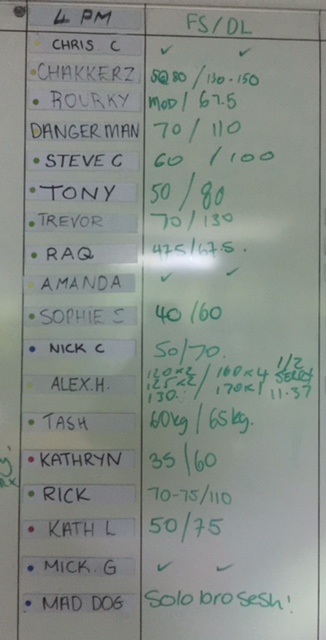 4 PM FS/DL
CHRIS C ✓ ✓
CHAKKERZ 50@80 / 130-150
ROURKY MOD / 67.5
DANGERMAN 70 / 110
STEVE C 60 / 100
TONY 50 / 80
TREVOR 70 / 130
RAQ 47.5 / 67.5
AMANDA ✓ ✓
SOPHIE S 40 / 60
NICK C 50 / 70.
ALEX.H. 120x2 / 160x4 1/2
125x2 170x1
130. 11.37
TASH 60kg / 65kg.
KATHRYN 35 / 60
RICK 70-75/110
KATH L 50 / 75
MICK.G ✓ ✓
MAD DOG Solo bro sesh!